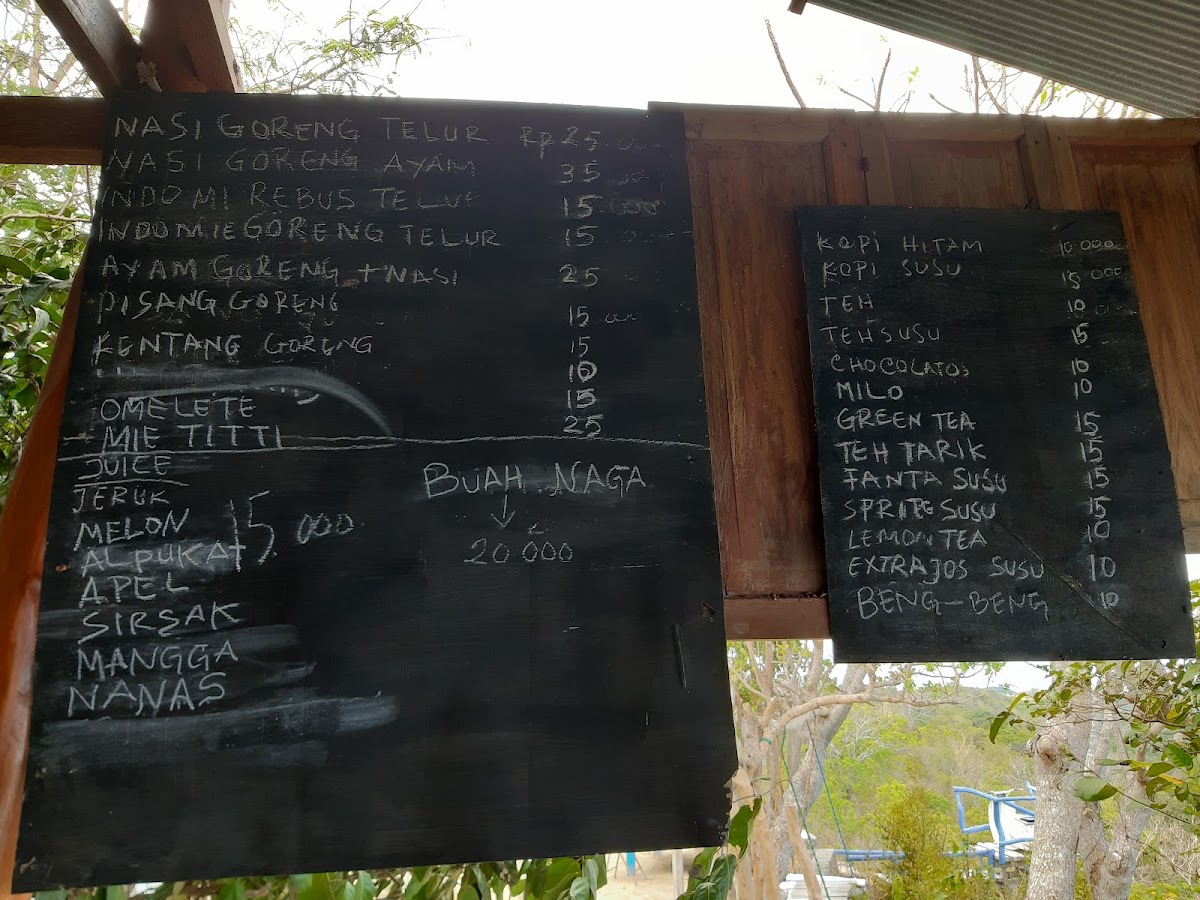 NASI GORENG TELUR Rp 25.000
NASI GORENG AYAM 35.000
INDOMI REBUS TELUR 15.000
INDOMIE GORENG TELUR 15.000
AYAM GORENG + NASI 25
PISANG GORENG 15.000
KENTANG GORENG 15
10
OMELETE 15
MIE TITTI 25
JUICE
JERUK
MELON
ALPUKAT
APEL
SIRSAK
MANGGA
NANAS
15.000
BUAH NAGA
↓
20 000
KOPI HITAM 10 000
KOPI SUSU 15 000
TEH 10 000
TEH SUSU 15
CHOCOLATOS 10
MILO 10
GREEN TEA 15
TEH TARIK 15
FANTA SUSU 15
SPRITE SUSU 15
LEMON TEA 10
EXTRAJOS SUSU 10
BENG-BENG 10